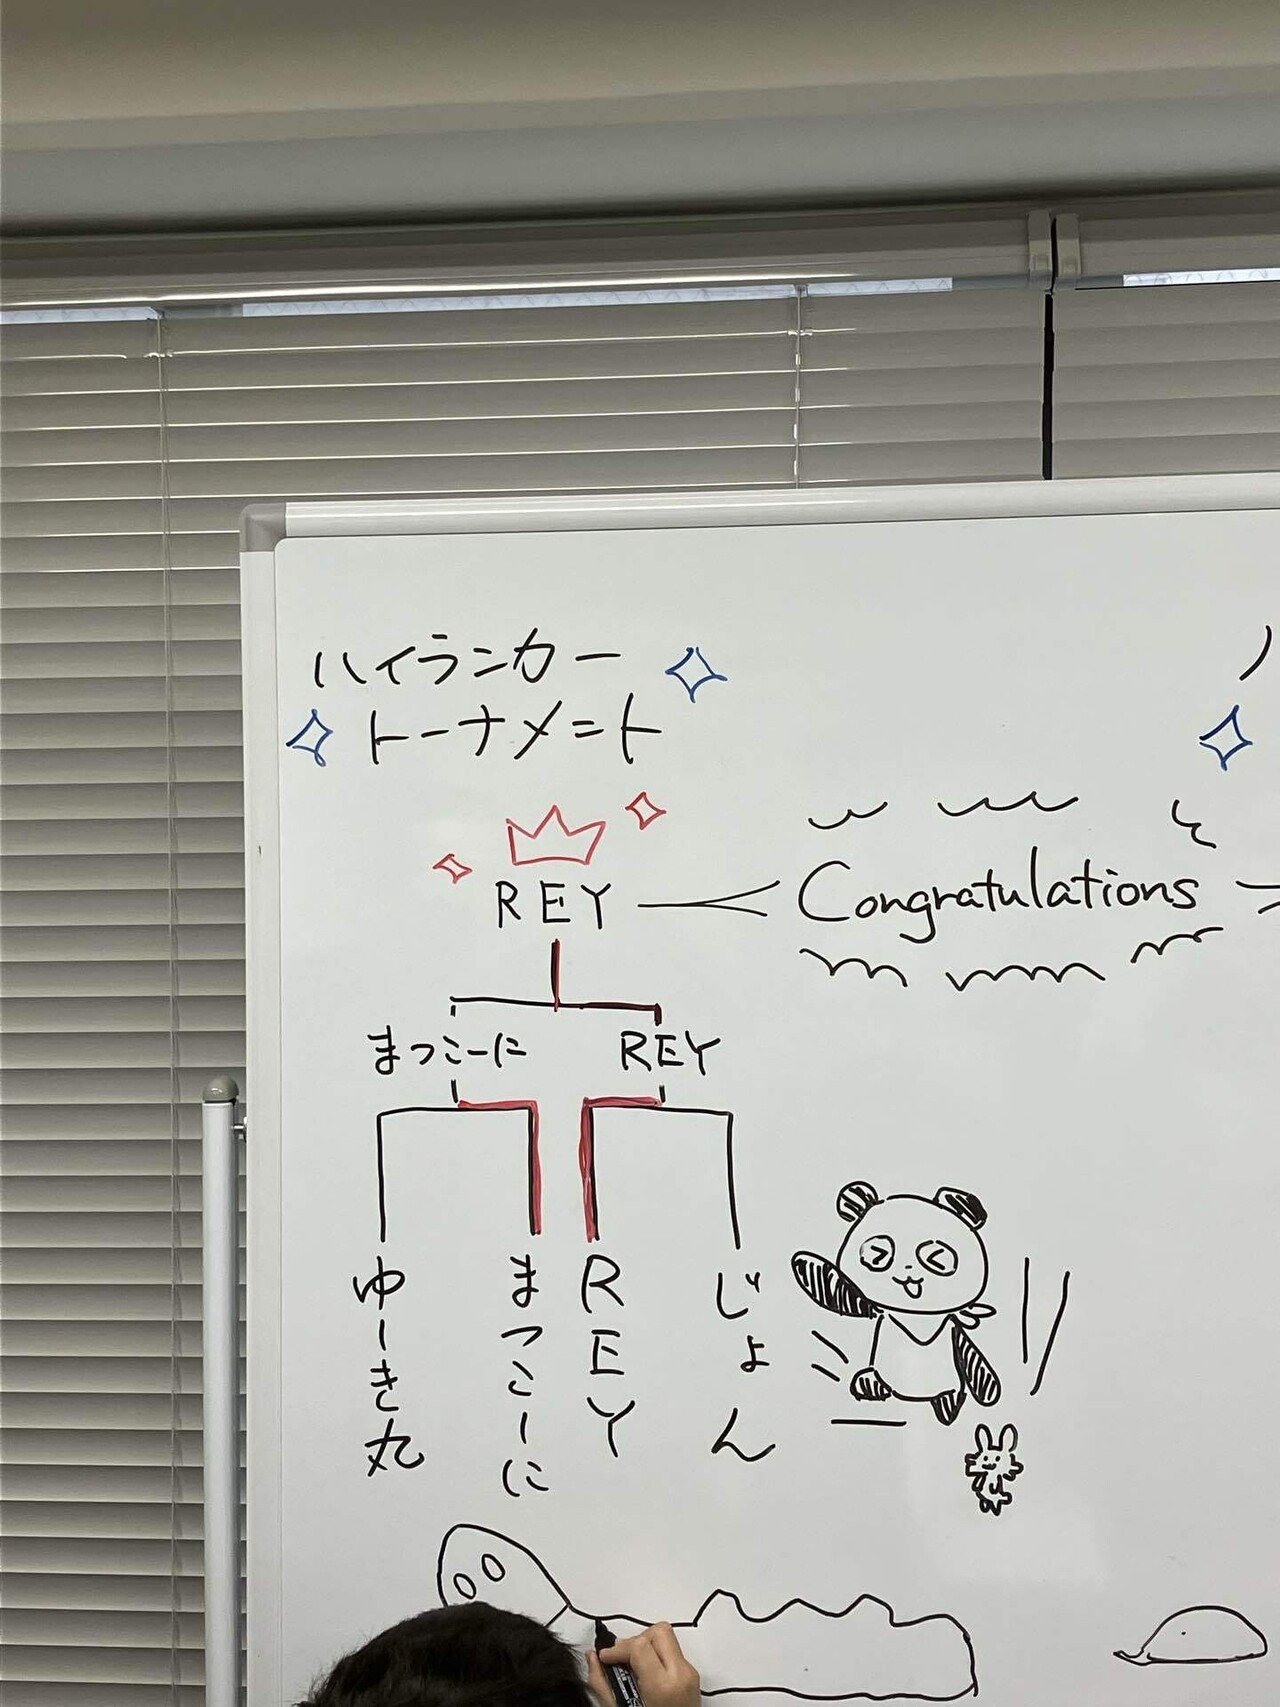 ハイランカー
トーナメント
REY
Congratulations
まつこーに
REY
ゆーき丸
まつこーに
REY
じょん